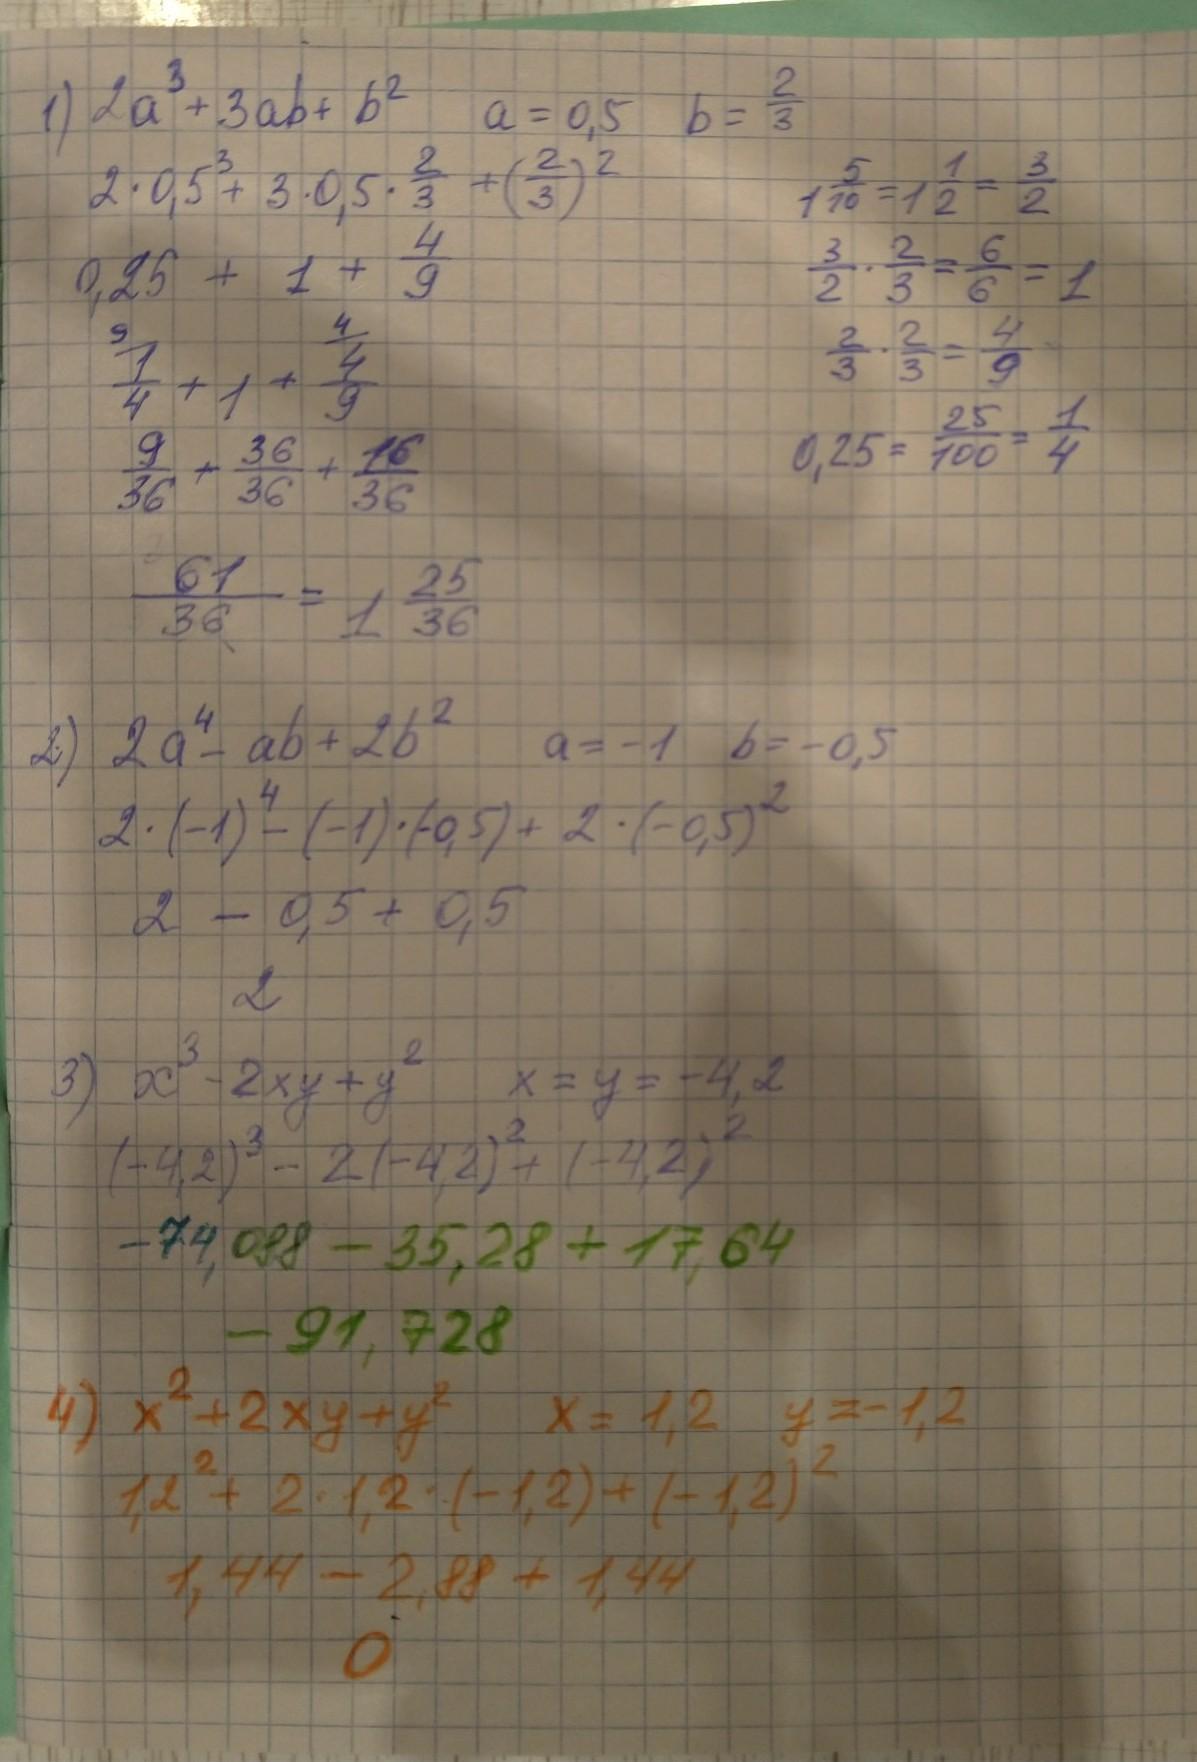 1) 2a³ + 3ab + b² a = 0,5 b = 2/3
2·0,5³ + 3·0,5·2/3 + (2/3)²
0,25 + 1 + 4/9
9 4
1/4 + 1 + 4/9
9/36 + 36/36 + 16/36
61/36 = 1 25/36
1 5/10 = 1 1/2 = 3/2
3/2 · 2/3 = 6/6 = 1
2/3 · 2/3 = 4/9
0,25 = 25/100 = 1/4
2) 2a⁴ - ab + 2b² a = -1 b = -0,5
2·(-1)⁴ - (-1)·(-0,5) + 2·(-0,5)²
2 - 0,5 + 0,5
2
3) x³ - 2xy + y² x = y = -4,2
(-4,2)³ - 2(-4,2)² + (-4,2)²
-74,088 - 35,28 + 17,64
- 91,728
4) x² + 2xy + y² x = 1,2 y = -1,2
1,2² + 2·1,2·(-1,2) + (-1,2)²
1,44 - 2,88 + 1,44
0